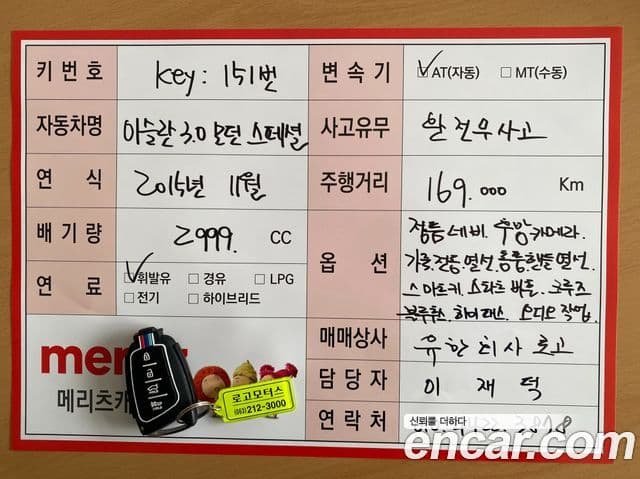 키번호 key: 151번 변속기 ✓□AT(자동) □MT(수동)
자동차명 아슬란 3.0 모던 스페셜 사고유무 완전무사고
연식 2015년 11월 주행거리 169.000 Km
배기량 2999. CC
옵션 정품네비. 후방카메라.
가죽전동열선.통풍핸들열선.
스마트키 스타트버튼. 크루즈
블루투스. 하이패스. 오디오 작업.
연료 ✓□휘발유 □경유 □LPG
□전기 □하이브리드
매매상사 유한회사 로고
담당자 이재덕
연락처
mer
메리츠캐
로고모터스
(063)212-3000
신뢰를 더하다
encar.com